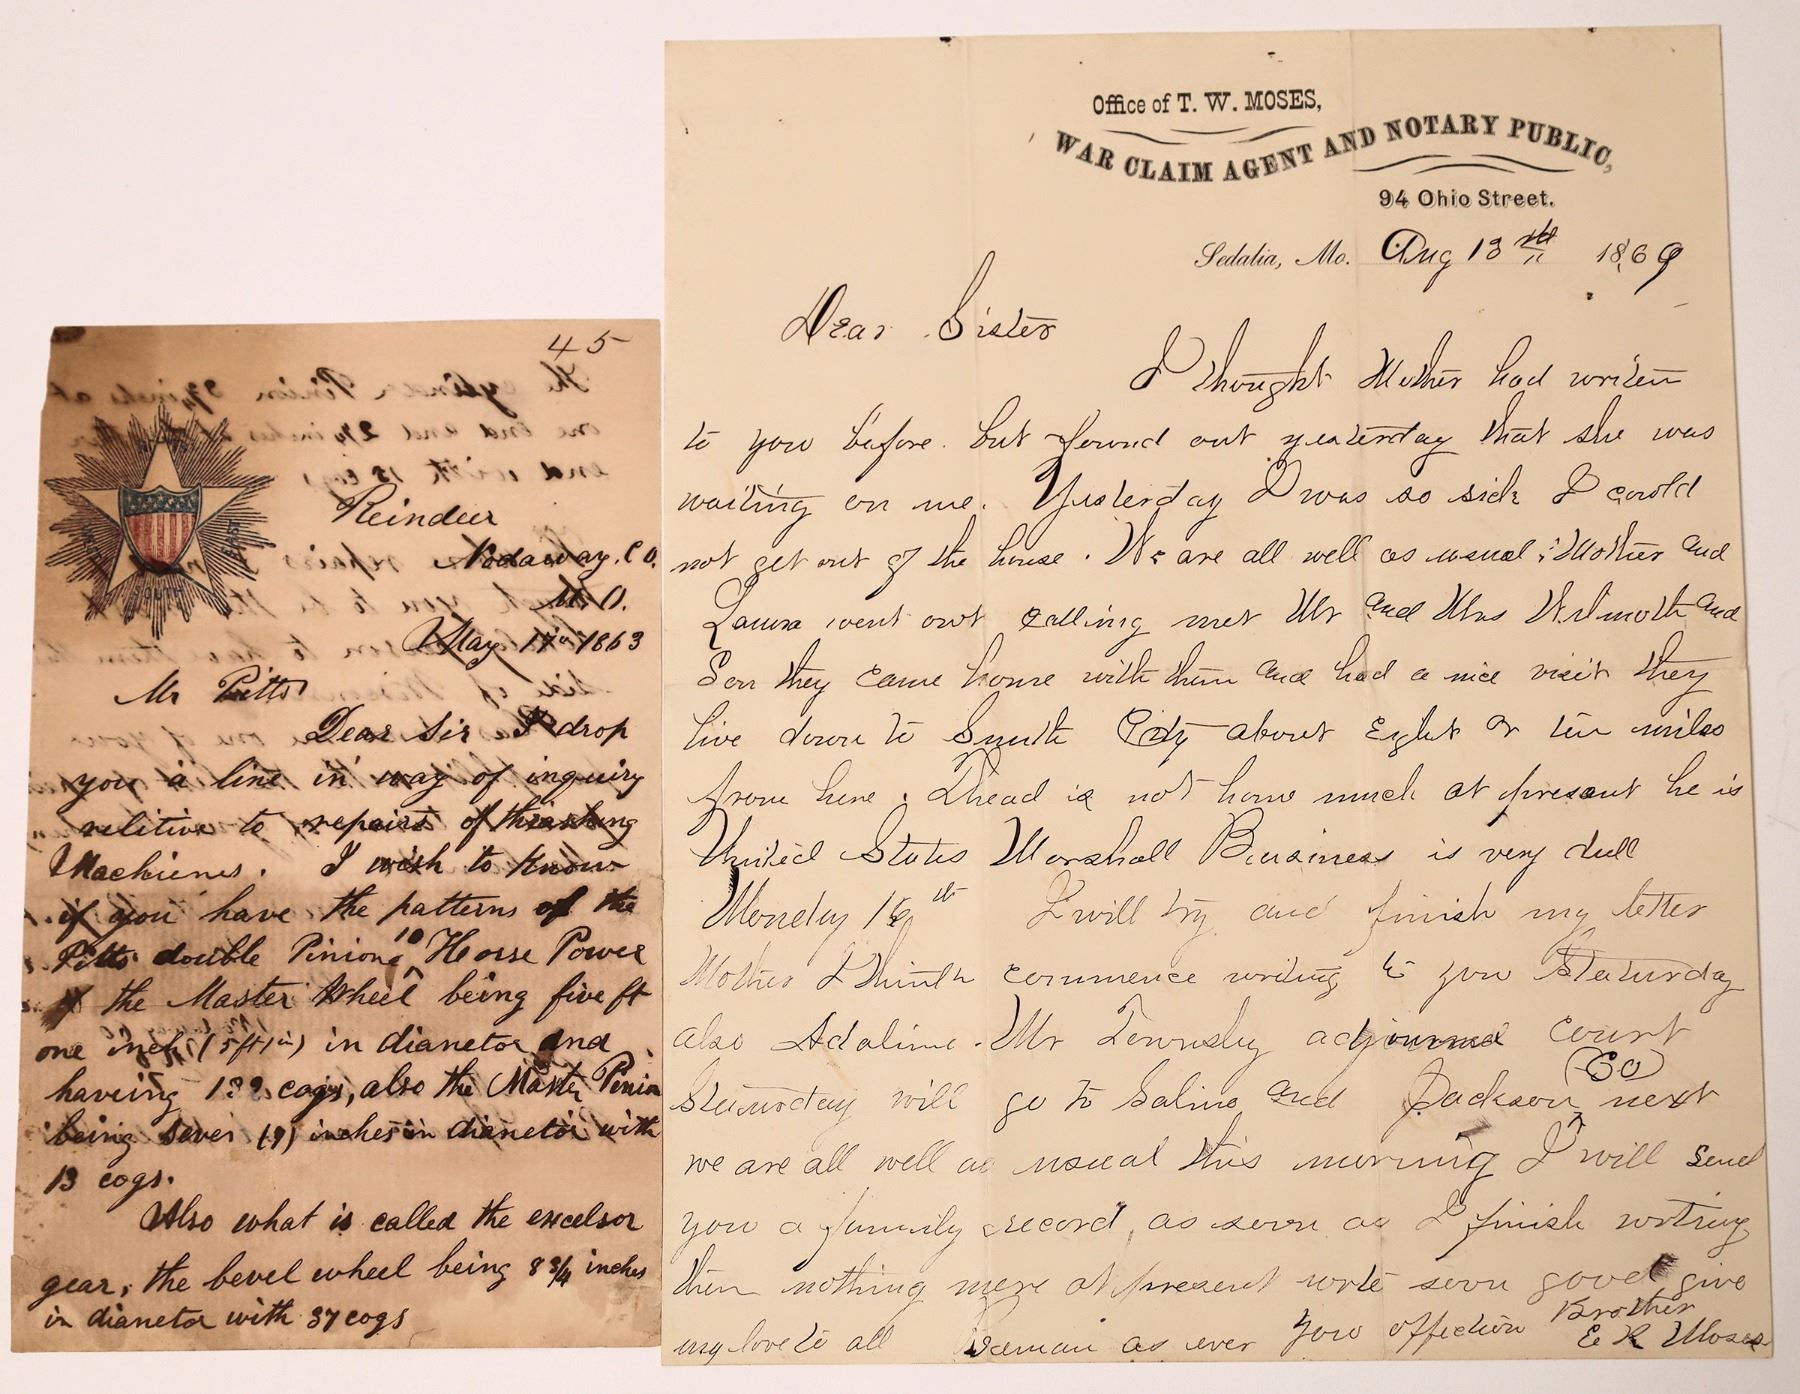 45
Reindeer
Nodaway, Co.
Mo.
May 17th 1863
Mr Pitts
Dear Sir I drop
you a line in way of inquiry
relitive to repairs of thrashing
Machienes. I wish to know
if you have the patterns of the
Pitts double Pinion 10 Horse Power
the Master Wheel being five ft
one inch (5ft 1in) in dianetor and
haveing 132 cogs, also the Master Pinion
being seven (7) inches in dianetor with
13 cogs.
Also what is called the excelsor
gear, the bevel wheel being 8 3/4 inches
in dianetor with 37 cogs
SOUTH
EAST
Office of T. W. MOSES,
WAR CLAIM AGENT AND NOTARY PUBLIC,
94 Ohio Street.
Sedalia, Mo. Aug 13th 1869
Dear Sister
I thought Mother had writen
to you before. but found out yesterday that she was
waiting on me. Yesterday I was so sick I could
not get out of the house. We are all well as usual. Mother and
Laura went out calling met Mr and Mrs and
Son they came home with them and had a nice visit they
live down to Smith City about Eight or ten miles
from here. Thead is not home much at present he is
United States Marshall Buisiness is very dull
Monday 16th I will try and finish my letter
Mother I think commence writing to you Staturday
also Adaline. Mr Townsley adjourned court
Staturday will go to Saline and Jackson (Co) next
we are all well as usual this morning I will send
you a family record as soon as I finish writing
then nothing more at present write soon good give
my love to all Remain as ever your affection Brother
E R Moses